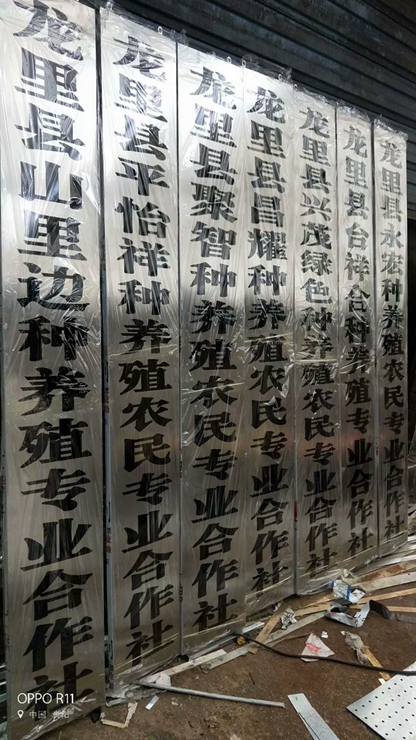 龙里县山里边种养殖专业合作社
龙里县平怡祥种养殖农民专业合作社
龙里县聚智种养殖农民专业合作社
龙里县昌耀种养殖农民专业合作社
龙里县兴茂绿色种养殖农民专业合作社
龙里县台祥合种养殖专业合作社
龙里县永宏种养殖农民专业合作社
OPPO R11
中国·贵阳